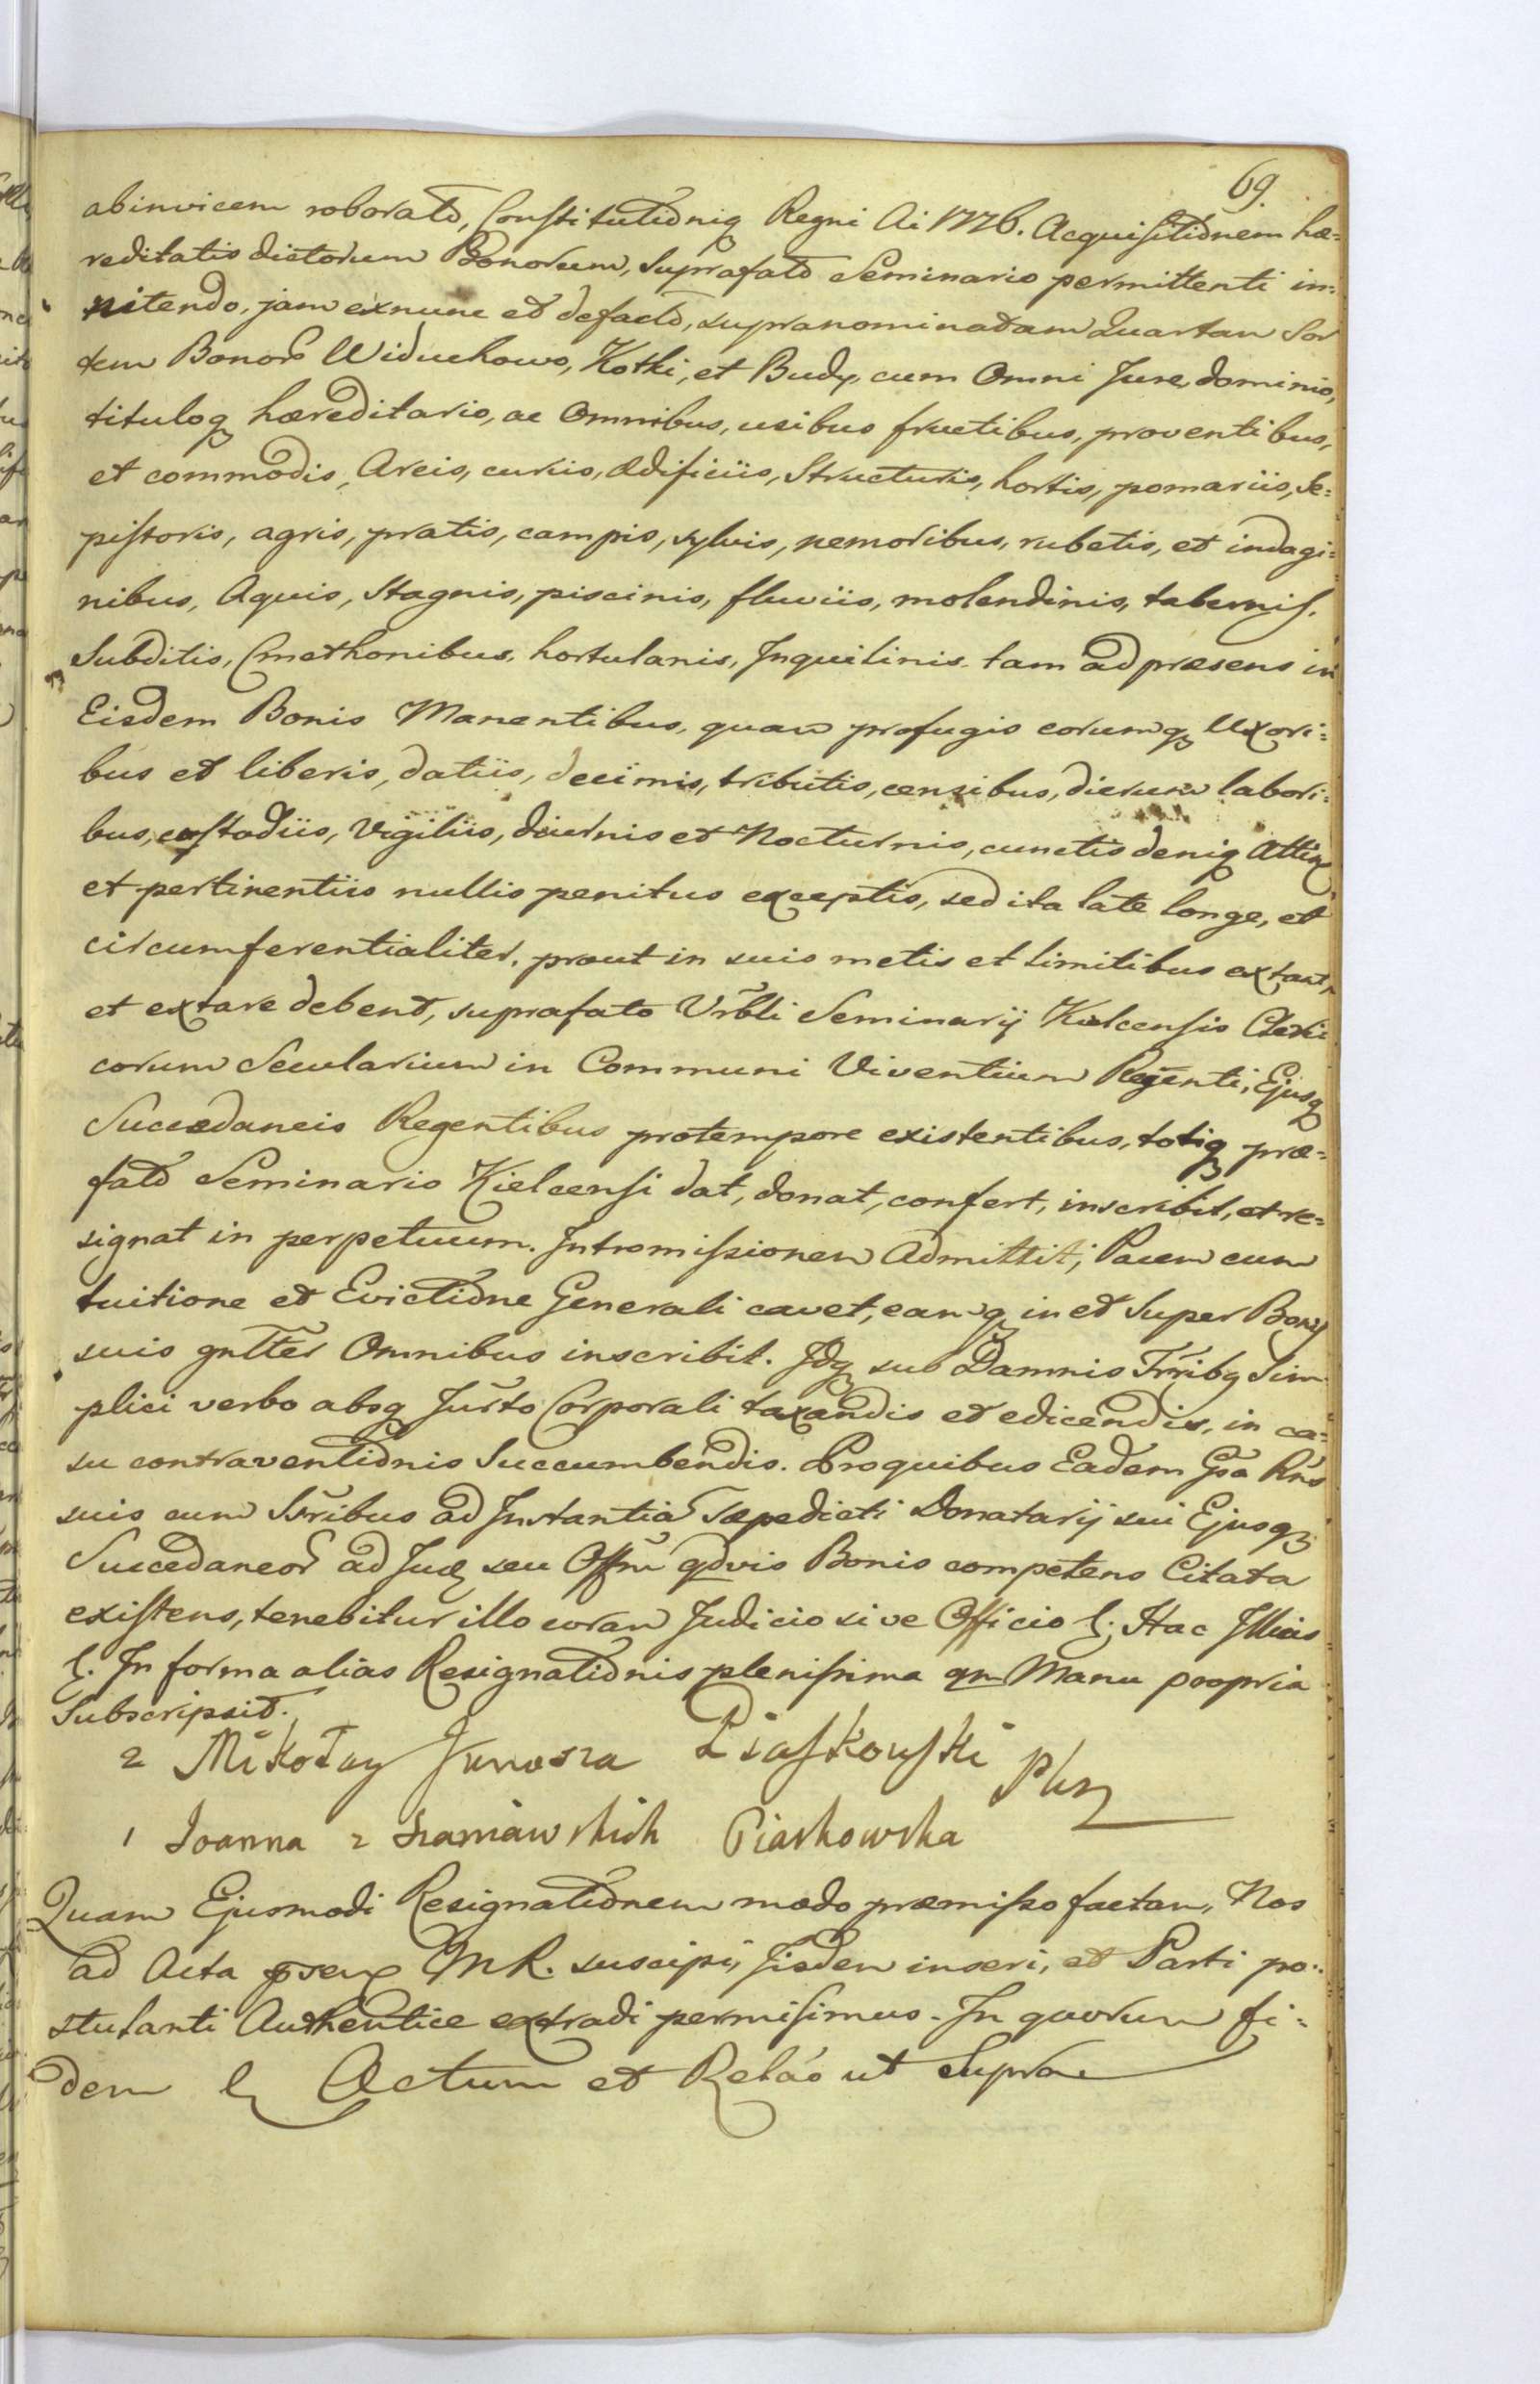 69.
abinvicem roborato, Constitutioniq Regni Ai 1776. Acquisitionem hæ=
reditatis dictorum Bonorum, suprafato Seminario permittenti in=
nitendo, jam exnunc et defacto, supranominatam Quartam Sor
tem Bonor Widuchowo, Kotki, et Budy, cum Omni Jure, dominio,
tituloq hæreditario, ac Omnibus, usibus fructibus, proventibus,
et commodis, Areis, curiis, Ædificiis, Structuris, hortis, pomariis, Se=
pistoris, agris, pratis, campis, sylvis, nemoribus, rubetis, et indagi=
nibus, Aquis, Stagnis, piscinis, fluviis, molendinis, tabernis.
Subditis, Cmethonibus, hortulanis, Inquilinis. tam ad præsens in
Eisdem Bonis Manentibus, quam profugis eorumq Uxori=
bus et liberis, datiis, decimis, tributis, censibus, dierum labori=
bus, custodiis, Vigiliis, diurnis et Nocturnis, cunctis deniq Attin
et pertinentiis nullis penitus exceptis, sed ita late longe, et
circumferentialiter, prout in suis metis et limitibus extant,
et extare debent, suprafato Vrbli Seminarij Kielcensis Cleri
corum Secularium in Communi Viventium Regenti, Ejusq
Succedaneis Regentibus protempore existentibus, totiq præ=
fato Seminario Kielcensi dat, donat, confert, inscribit, et re=
signat in perpetuum. Intromissionem Admittit, Pacem cum
tuitione et Evictione Generali cavet, eamq in et Super Bonis
suis gntter Omnibus inscribit. Idq sub Damnis Trribq Sim
plici verbo absq Jurto Corporali taxandis et edicendis, in ca=
su contraventionis Succumbendis. Proquibus Eadem Gsa Rns
suis cum Ssribus ad Instantia Sæpedicti Donatarij sui Ejusq
Succedaneor ad Jud seu Offm qdvis Bonis competens Citata
existens, tenebitur illo coram Judicio sive Officio &. Hac Illius
&. In forma alias Resignationis plenissima qm Manu propria
Subscripsit.
2 Mikołay Junosza Piaskowski Pkz
1 Joanna z Szaniawskich Piaskowska
Quam Ejusmodi Resignationem modo præmisso factam, Nos
ad Acta psen MR. suscipi, Iisdem inseri, et Parti po=
stulanti Authentice extradi permisimus. In quorum fi=
dem & Actum et Relao ut Supra